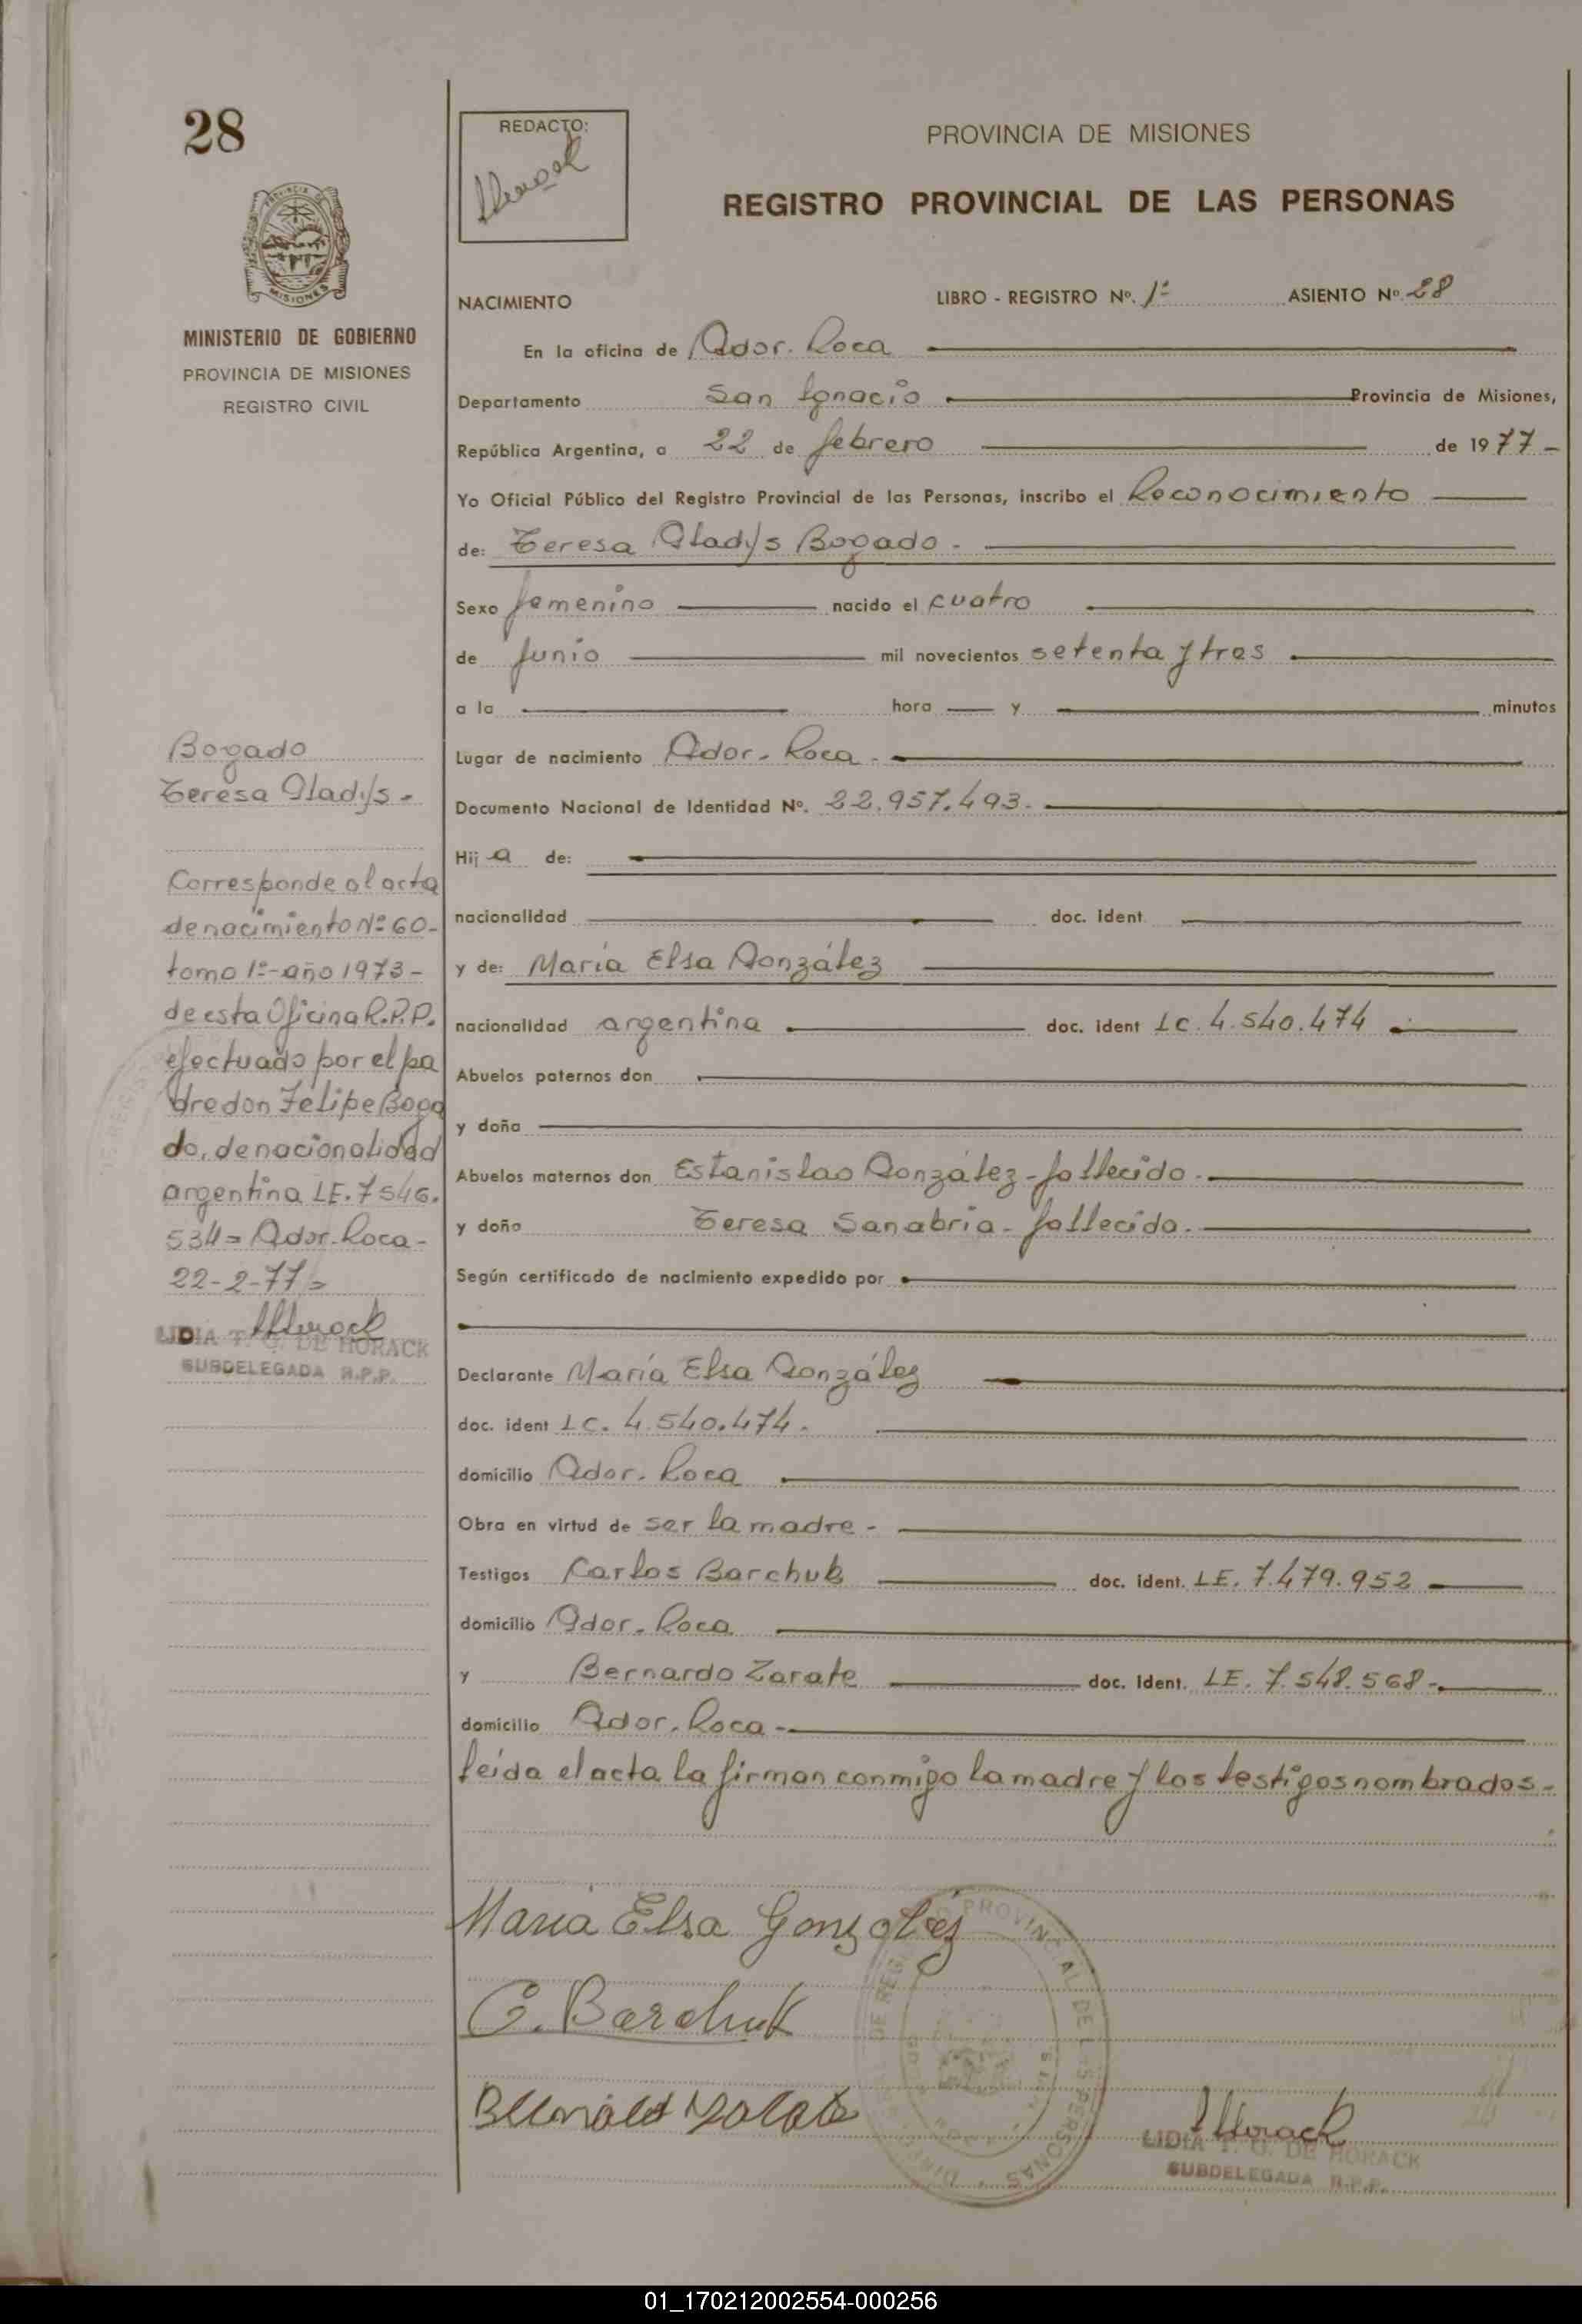 28
REDACTO:
PROVINCIA DE MISIONES
REGISTRO PROVINCIAL DE LAS PERSONAS
PROVINCIA DE
MISIONES
MINISTERIO DE GOBIERNO
PROVINCIA DE MISIONES
REGISTRO CIVIL
NACIMIENTO LIBRO - REGISTRO Nº. 1º ASIENTO Nº 28
En la oficina de Gdor. Roca
Departamento San Ignacio Provincia de Misiones,
República Argentina, a 22 de febrero de 1977-
Yo Oficial Público del Registro Provincial de las Personas, inscribo el Reconocimiento
de: Teresa Gladys Bogado.
Sexo femenino nacido el cuatro
de Junio mil novecientos setenta y tres
a la hora y minutos
Lugar de nacimiento Gdor. Roca.
Documento Nacional de Identidad Nº. 22.957.493.
Hija de:
nacionalidad doc. ident.
y de: María Elsa González
nacionalidad argentina doc. ident LC. 4.540.474
Abuelos paternos don
y doña
Abuelos maternos don Estanislao González-fallecido.
y doña Teresa Sanabria-fallecida.
Según certificado de nacimiento expedido por
Declarante María Elsa González
doc. ident LC. 4.540.474.
domicilio Gdor. Roca
Obra en virtud de ser la madre-
Testigos Carlos Barchuk doc. ident. LE. 7.479.952
domicilio Gdor. Roca
y Bernardo Zarate doc. ident. LE. 7.548.568-
domicilio Gdor. Roca-
leída el acta la firman conmigo la madre y los testigos nombrados-
Bogado
Teresa Gladys-
Corresponde al acta
de nacimiento Nº 60-
tomo 1º-año 1973-
de esta Oficina R.P.P.
efectuado por el pa
dre don Felipe Boga
do, de nacionalidad
argentina LE. 7546.
534= Gdor. Roca-
22-2-77=
LHorack
LIDIA T. O. DE HORACK
SUBDELEGADA R.P.P.
María Elsa González
C. Barchuk
Bernardo Zarate
PROVINCIAL DE LAS PERSONAS
LHorack
LIDIA T. O. DE HORACK
SUBDELEGADA R.P.P.
01_170212002554-000256